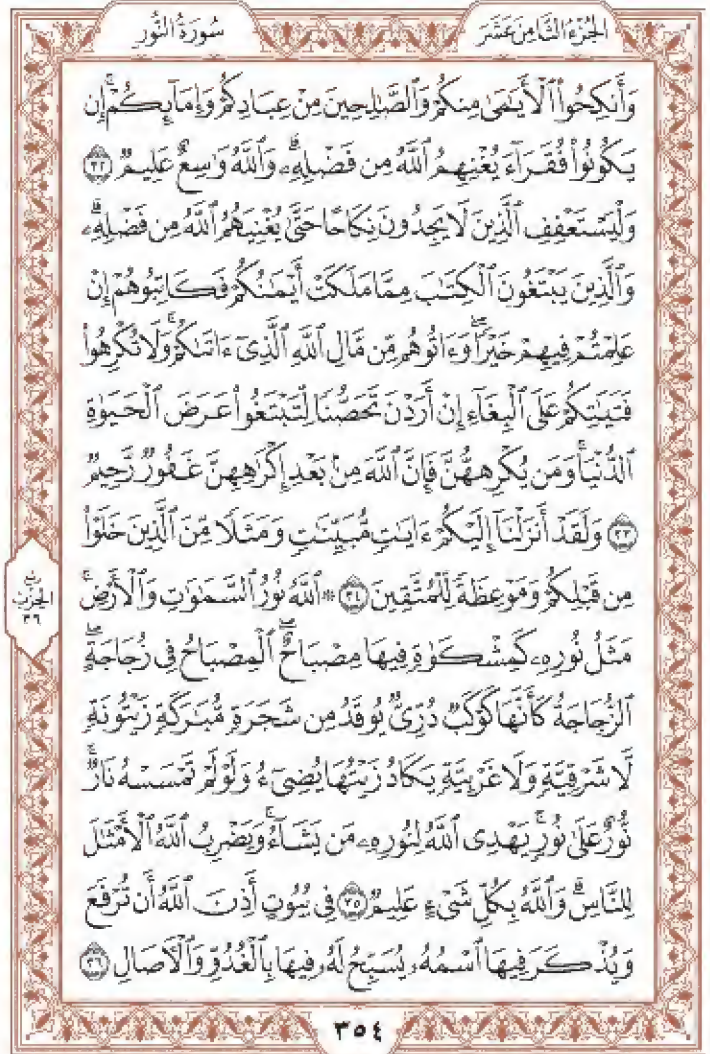 الجُزْءُ الثَّامِنَ عَشَرَ
سُورَةُ النُّورِ
وَأَنكِحُوا۟ ٱلْأَيَـٰمَىٰ مِنكُمْ وَٱلصَّـٰلِحِينَ مِنْ عِبَادِكُمْ وَإِمَآئِكُمْ ۚ إِن
يَكُونُوا۟ فُقَرَآءَ يُغْنِهِمُ ٱللَّهُ مِن فَضْلِهِۦ ۗ وَٱللَّهُ وَٰسِعٌ عَلِيمٌ ٣٢
وَلْيَسْتَعْفِفِ ٱلَّذِينَ لَا يَجِدُونَ نِكَاحًا حَتَّىٰ يُغْنِيَهُمُ ٱللَّهُ مِن فَضْلِهِۦ ۗ
وَٱلَّذِينَ يَبْتَغُونَ ٱلْكِتَـٰبَ مِمَّا مَلَكَتْ أَيْمَـٰنُكُمْ فَكَاتِبُوهُمْ إِنْ
عَلِمْتُمْ فِيهِمْ خَيْرًا ۖ وَءَاتُوهُم مِّن مَّالِ ٱللَّهِ ٱلَّذِىٓ ءَاتَىٰكُمْ ۚ وَلَا تُكْرِهُوا۟
فَتَيَـٰتِكُمْ عَلَى ٱلْبِغَآءِ إِنْ أَرَدْنَ تَحَصُّنًا لِّتَبْتَغُوا۟ عَرَضَ ٱلْحَيَوٰةِ
ٱلدُّنْيَا ۚ وَمَن يُكْرِههُّنَّ فَإِنَّ ٱللَّهَ مِنۢ بَعْدِ إِكْرَٰهِهِنَّ غَفُورٌ رَّحِيمٌ
٣٣ وَلَقَدْ أَنزَلْنَآ إِلَيْكُمْ ءَايَـٰتٍ مُّبَيِّنَـٰتٍ وَمَثَلًا مِّنَ ٱلَّذِينَ خَلَوْا۟
مِن قَبْلِكُمْ وَمَوْعِظَةً لِّلْمُتَّقِينَ ٣٤ * ٱللَّهُ نُورُ ٱلسَّمَـٰوَٰتِ وَٱلْأَرْضِ ۚ
مَثَلُ نُورِهِۦ كَمِشْكَوٰةٍ فِيهَا مِصْبَاحٌ ۖ ٱلْمِصْبَاحُ فِى زُجَاجَةٍ ۖ
ٱلزُّجَاجَةُ كَأَنَّهَا كَوْكَبٌ دُرِّىٌّ يُوقَدُ مِن شَجَرَةٍ مُّبَـٰرَكَةٍ زَيْتُونَةٍ
لَّا شَرْقِيَّةٍ وَلَا غَرْبِيَّةٍ يَكَادُ زَيْتُهَا يُضِىٓءُ وَلَوْ لَمْ تَمْسَسْهُ نَارٌ ۚ
نُّورٌ عَلَىٰ نُورٍ ۗ يَهْدِى ٱللَّهُ لِنُورِهِۦ مَن يَشَآءُ ۚ وَيَضْرِبُ ٱللَّهُ ٱلْأَمْثَـٰلَ
لِلنَّاسِ ۗ وَٱللَّهُ بِكُلِّ شَىْءٍ عَلِيمٌ ٣٥ فِى بُيُوتٍ أَذِنَ ٱللَّهُ أَن تُرْفَعَ
وَيُذْكَرَ فِيهَا ٱسْمُهُۥ يُسَبِّحُ لَهُۥ فِيهَا بِٱلْغُدُوِّ وَٱلْـَٔاصَالِ ٣٦
ربع
الحزب
٣٦
٣٥٤